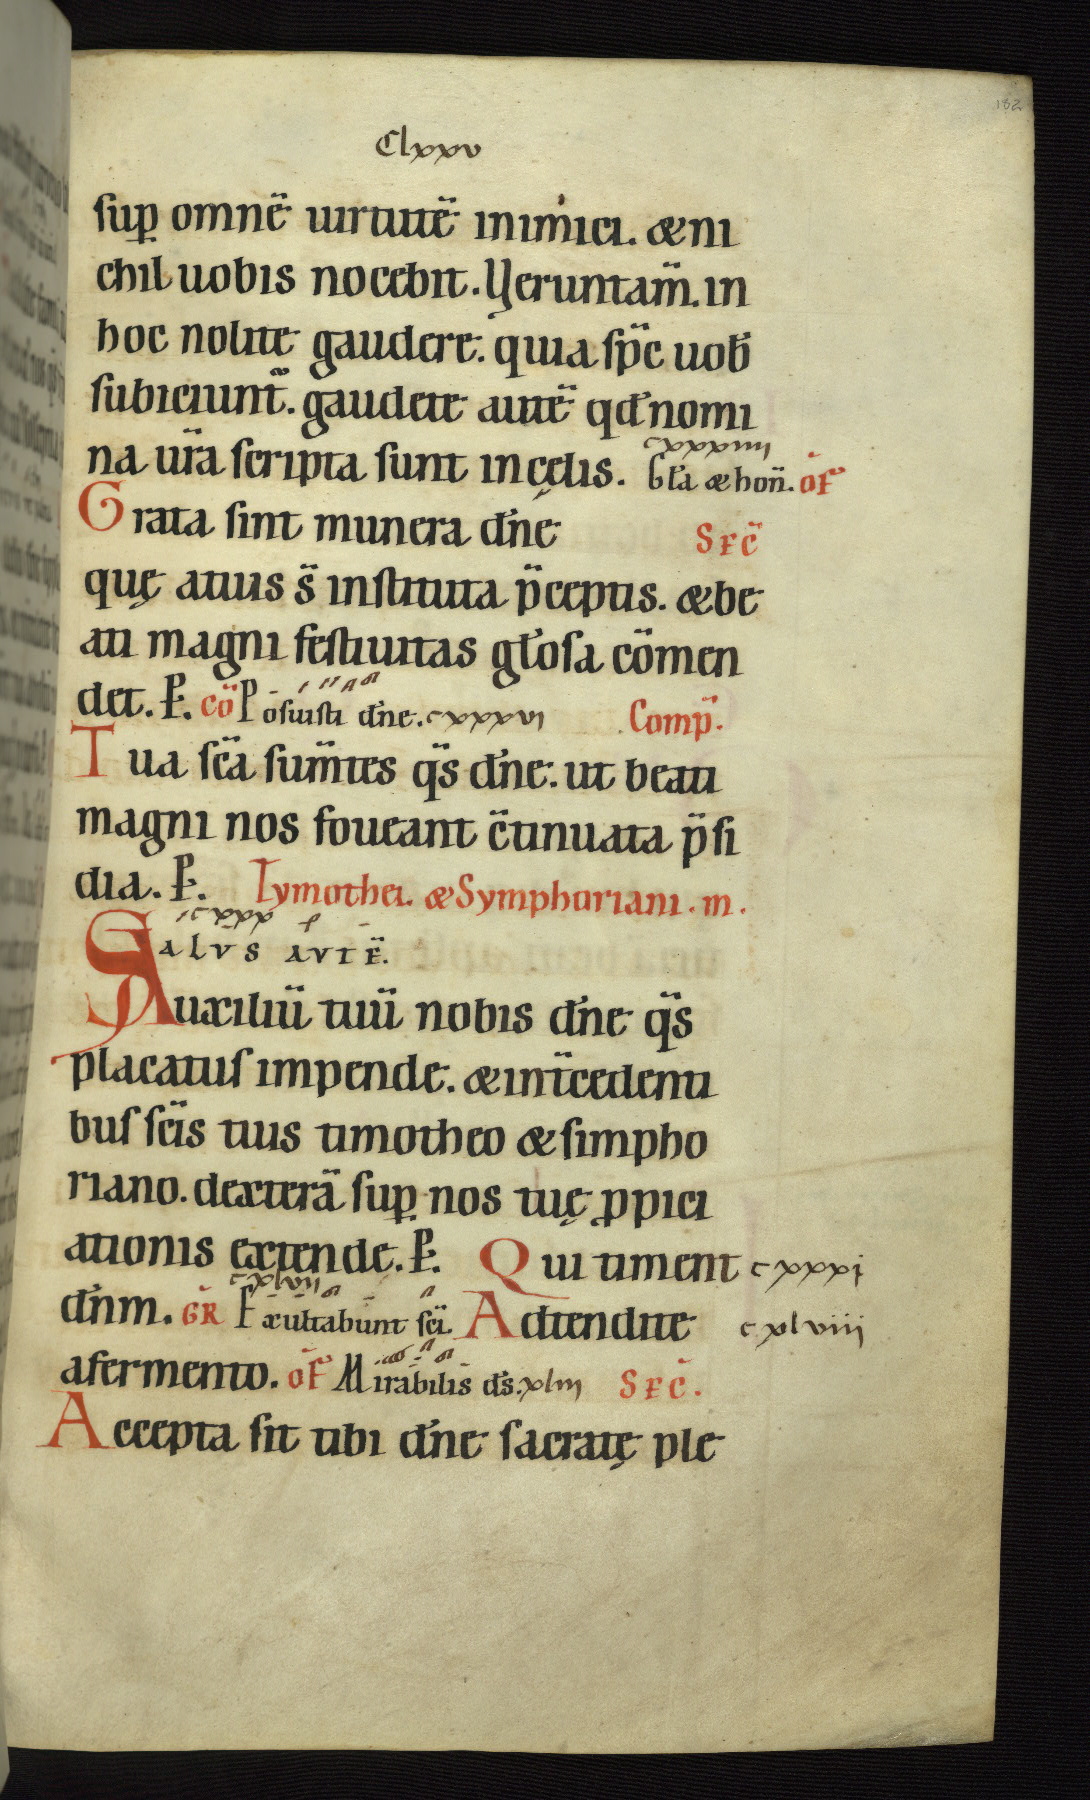 182
Clxxv
sup omnē uirtutē inimici. & ni
chil uobis nocebit. Veruntam̄. in
hoc nolite gaudere. quia sp̄c uob
subiciunt̄. gaudete autē qđ nomi
cxxxxiiii
na ur̄a scripta sunt in cęlis. Gl̄a & hon̄. of
Grata sint munera dn̄e Sec̄
quę atuis s̄ instituta p̄ceptis. & be
ati magni festiuitas gl̄osa cōmen
det. P. cō Posuisti dn̄e. cxxxxvi Comp̄.
Tua sc̄a sum̄tes q̄s dn̄e. ut beati
magni nos foueant c̄tinuata p̄si
dia. P. Tymothei. & Symphoriani. m.
Salvs avtē.
Auxiliū tuū nobis dn̄e q̄s
placatus impende. & int̄cedenti
bus sc̄is tuis timotheo & simpho
riano. dexterā sup nos tuę ppici
ationis extende. P. Qui timent cxxxi
dn̄m. GR Exultabunt sc̄i Adtendite cxlviiii
afermento. of Mirabilis ds̄. xliii Sec̄.
Accepta sit tibi dn̄e sacratę ple